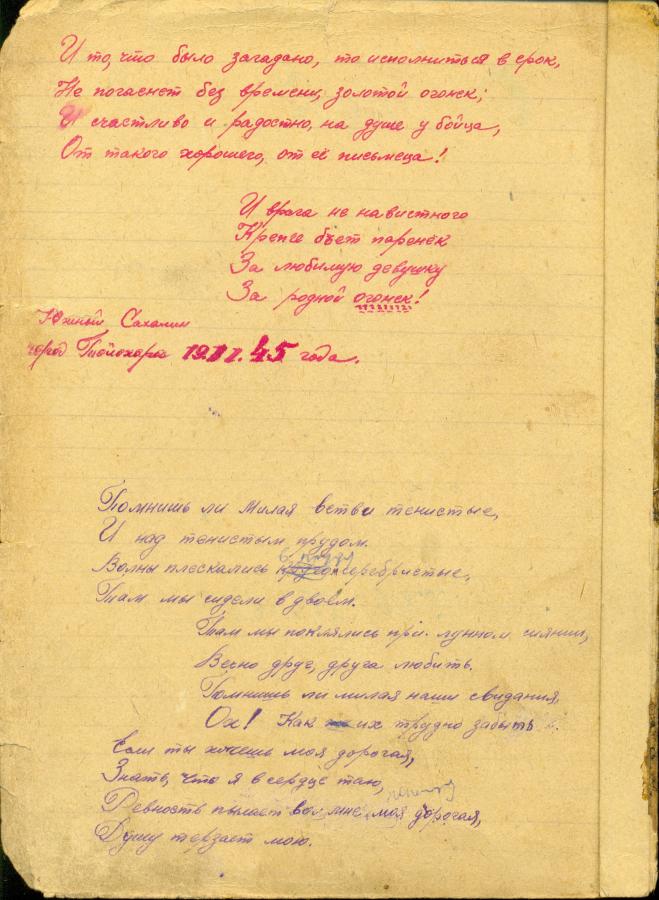 И то, что было загадано, то исполниться в срок,
Не погаснет без времени, золотой огонек;
И счастливо и радостно, на душе у бойца,
От такого хорошего, от её письмеца!
И врага не навистного
Крепче бъет паренёк
За любимую девушку
За родной огонек!
Южный Сахалин
город Тойохора 19. 45 года.
Помнишь ли милая ветви тенистые,
И над тенистым прудом.
Волны плескались серебристые,
Там мы сидели в двоем.
Там мы поклялись при. лунном сиянии,
Вечно друг, друга любить.
Помнишь ли милая наши свидания,
Ох! Как их трудно забыть.
Если ты хочешь моя дорогая,
Знать, что я в сердце таю,
Ревность пылает во мне моя дорогая,
Душу терзает мою.